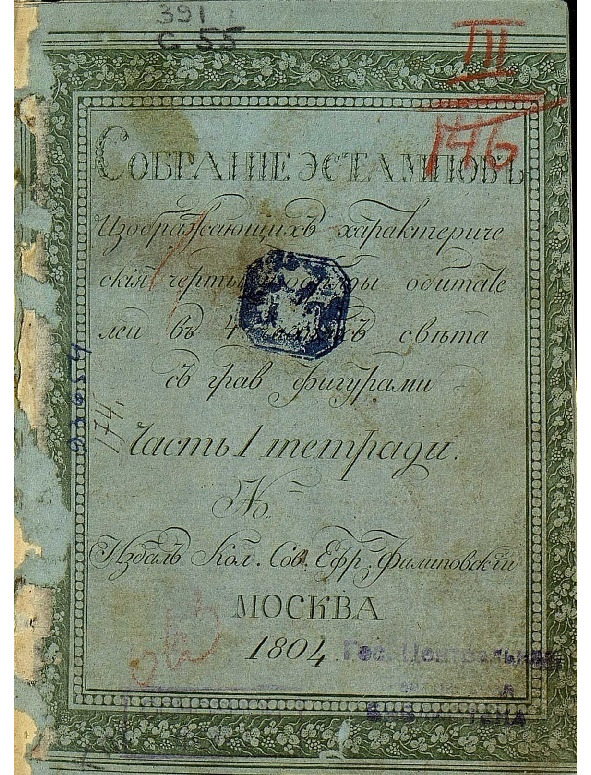 391
С 55
III
146
СОБРАНІЕ ЭСТАМПОВЪ
Изображающихъ характериче
скія черты обитате
леи въ 4 свѣта
съ грав фигурами
174.
Часть 1 тетради.
№
Издалъ Кол. Сов. Ефр. Филиповскій
МОСКВА
1804
Гос. Центральная